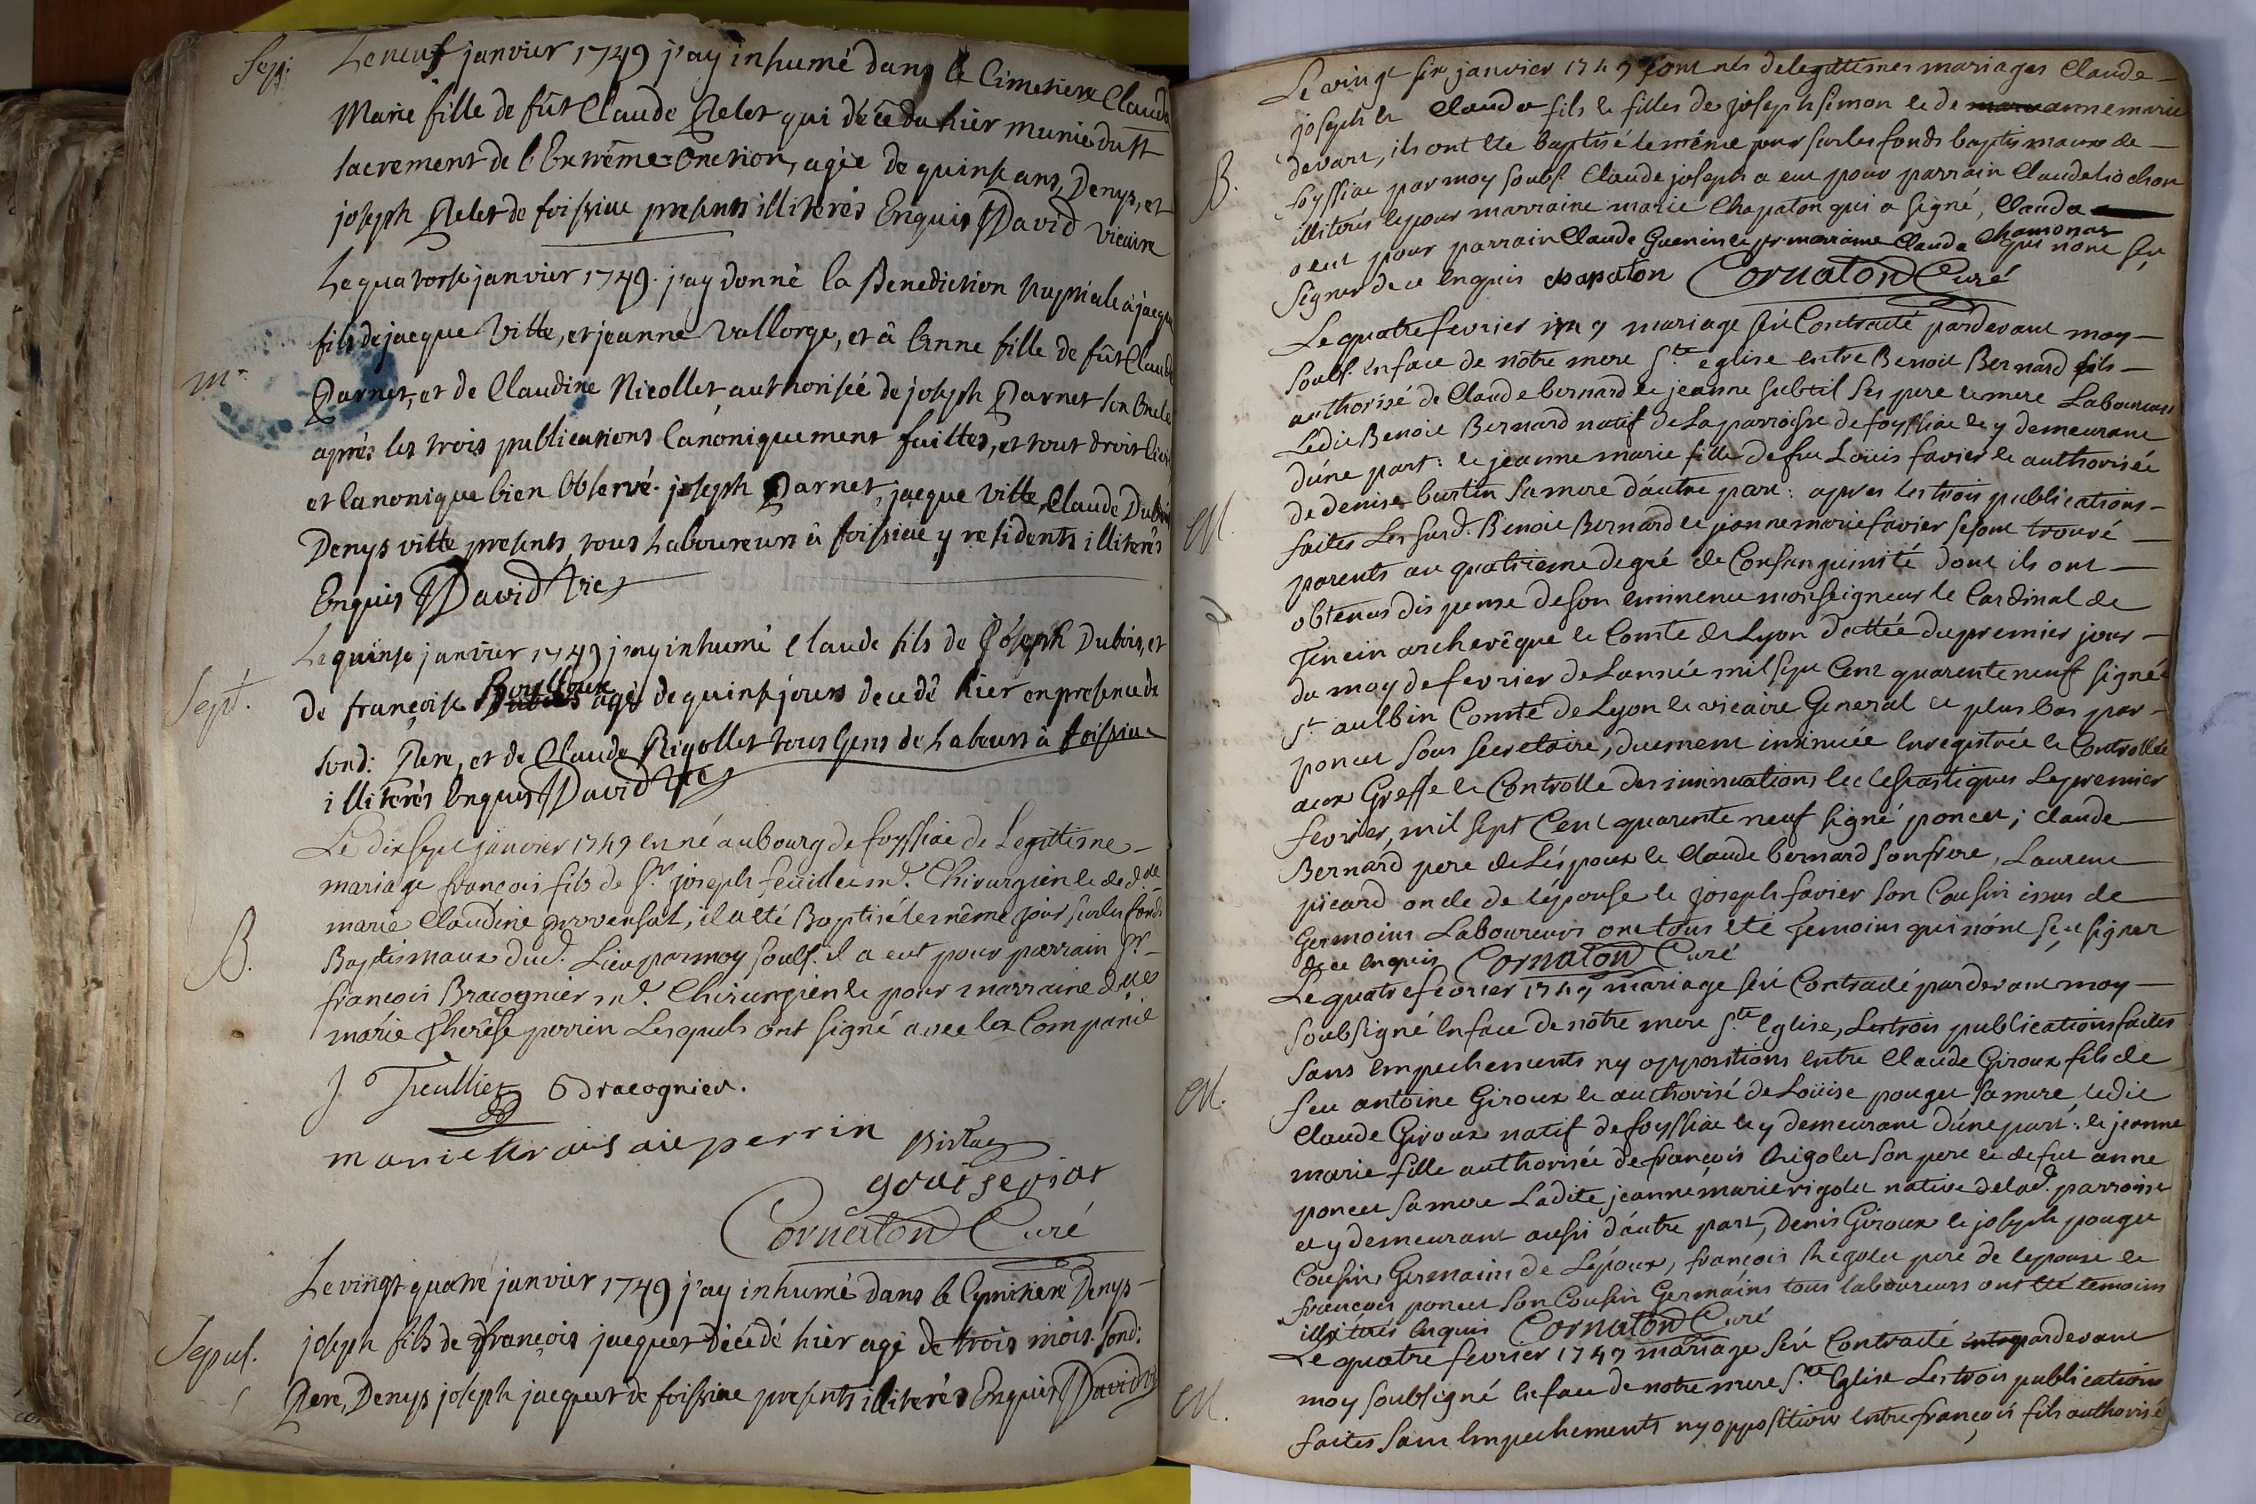 Sep:
Le neuf janvier 1749 j'ay inhumé dans le Cimetiere Claude
Marie fille de fût Claude Pelet qui décéda hier munie du St
sacrement de l'Extrême-Onction, agée de quinse ans, Denys, et
joseph Pelet de foissiac presents illiterés Enquis David vicaire
Le quatorse janvier 1749. j'ay donné la Benediction nuptiale à jacque
fils de jacque vitte, et jeanne vallorge, et à Enne fille de fût Claude
mr.
Parnet, et de Claudine Nicollet authorisée de joseph Parnet son Oncle
aprés les trois publications Canoniquement faittes, et tout droit Civil
et Canonique bien Observé. joseph Parnet, jacque vitte, Claude Dubois
Denys vitte presents tous Laboureurs à foissiac y residents illiterés
Enquis David vic
Le quinse janvier 1749 j'ay inhumé Claude fils de joseph Dubois, et
Sept.
de françoise Bouilloux agé de quinse jours decedé hier en presence de
sond: Pere, et de Claude Rigollet tous Gens de Labeurs à foissiac
illiterés Enquis David vic
Le dix sept janvier 1749 en né au bourg de foyssiac de Legittime
mariage françois fils de Sr. joseph feuillet md. Chirurgien le de dlle
marie Claudine provensal, il a eté Baptisé le même jour sur les fonds
B.
Baptismaux dud. Lieu par moy soubs. il a eut pour parrain Sr.
françois Bracognier md. Chirurgien le pour marraine dlle
marie therêse perrin Lesquels ont signé avec la Companie
J Feulliet Bracognier.
marie perrin
Cornaton Curé
Le vingt quatre janvier 1749 j'ay inhumé dans le Cymitiere Denys
Sepul.
joseph fils de françois jacquet décédé hier agé de trois mois. sond:
Pere, Denys joseph jacquet de foissiac presents illiterés Enquis David vic
Le vingt six janvier 1749 sont nés de legittimes mariages Claude
joseph le Claude fils le filles de joseph simon le de anne marie
devant, ils ont ete baptisé le même jour sur les fonds baptismaux de
B.
foyssiac par moy soubs. Claude joseph a eut pour parrain Claude
illiterés le pour marraine marie Chapaton qui a signé, Claude
a eut pour parrain Claude Guenin le pr marraine Claude Chamonar qui n'ont seu
signer de ce enquis chapaton Cornaton Curé
Le quatre fevrier 1749 mariage seu Contracté pardevant moy
soubs. en face de notre mere Ste eglise entre Benoit Bernard fils
authorisé de Claude bernard le jeanne subtil ses pere le mere Laboureurs
Ledit Benoit Bernard natif de La parroisse de foyssiac le y demeurant
d'une part: le jeanne marie fille de feu Loüis favier le authorisée
de denise burtin sa mere d'autre part: apres les trois publications
M.
faites Les susd. Benoit Bernard le jeanne marie favier se sont trouvé
parents au quatrieme degré de Consanguinité dont ils ont
obtenus dispense de son eminence monseigneur le Cardinal de
Tencin archevêque le Comte de Lyon dattée du premier jour
du moy de fevrier de L'année mil sept Cent quarente neuf signée
St aulbin Comte de Lyon le vicaire General le plus bas par
poncet sous secretaire, duement insinuée enregistrée le Controllée
aux Greffe le Controlle des insinuations ecclesiastiques Le premier
fevrier, mil sept Cent quarente neuf signé poncet; Claude
Bernard pere de L'époux le Claude bernard son frere, Laurent
picard oncle de l'épouse le joseph favier son Cousin issus de
Germains Laboureurs ont tous eté temoins qui n'ont seu signer
de ce enquis Cornaton Curé
Le quatre fevrier 1749 mariage seu Contracté pardevant moy
soubsigné en face de notre mere Ste Eglise, Les trois publications faites
sans empechements ny oppositions entre Claude Giroux fils de
M.
feu antoine Giroux le authorisé de Loüise pouget sa mere, Ledit
Claude Giroux natif de foyssiac le y demeurant d'une part: le jeanne
marie fille authorisée de françois Rigolet son pere le de feu anne
poncet sa mere Ladite jeanne marie rigolet native de lad. parroisse
et y demeurant aussi d'autre part, Denis Giroux le joseph pouget
Cousins Germains de L'époux, françois Rigolet pere de l'epouse le
françois poncet son Cousin Germains tous laboureurs ont eté temoins
illiterés enquis Cornaton Curé
Le quatre fevrier 1749 mariage seu Contracté pardevant
M.
moy soubsigné en face de notre mere Ste Eglise Les trois publications
faites sans empechements ny oppositions entre françois fils authorisé